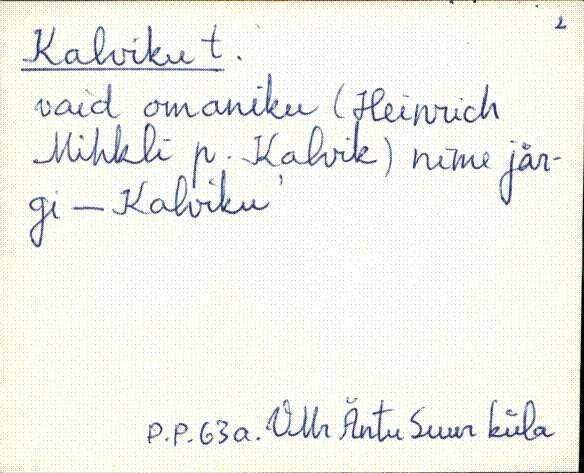 2
Kalviku t.
vaid omaniku (Heinrich
Mihkli p. Kalvik) nime jär-
gi – Kalviku'
P.P. 63 a. VMr Äntu Suur küla